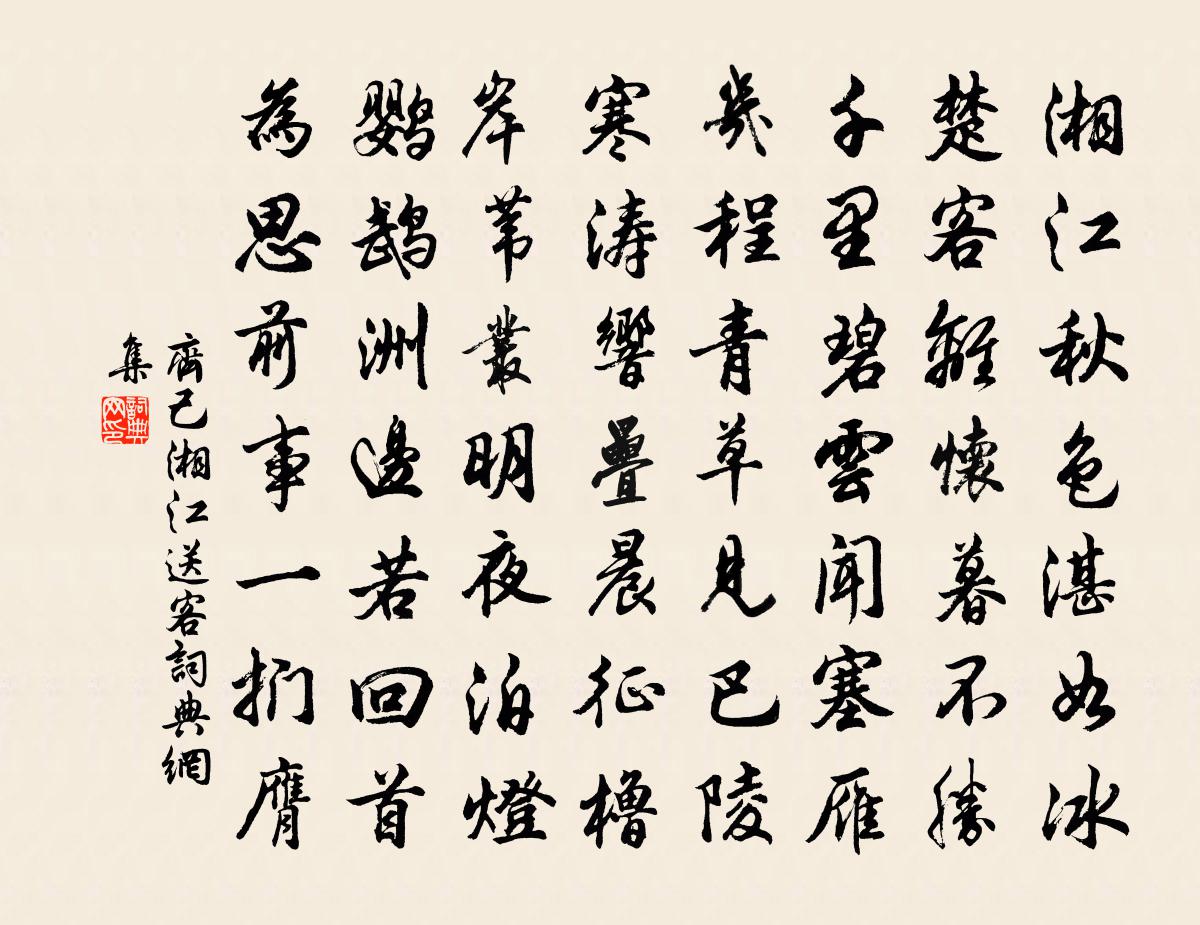 湘江秋色湛如冰
楚客離懷暮不勝
千里碧雲聞塞雁
幾程青草見巴陵
寒濤響疊晨征櫓
岸葦叢明夜泊燈
鸚鵡洲邊若回首
為思前事一捫膺
齊己湘江送客詞典網
集
詞典
网印